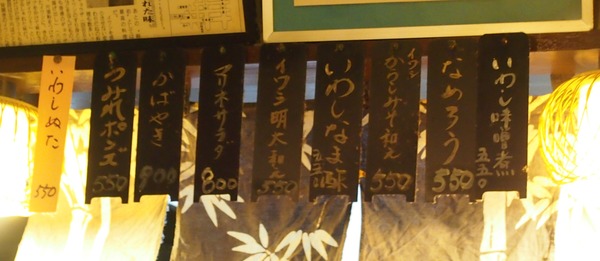 れた味
いわし味噌煮
五五〇
なめろう
550
イワシ
からしみそ和え
550
いわしなま酢
五五〇
イワシ明太和え
550
マリネサラダ
800
かばやき
900
つみれポンズ
550
いわしぬた
550